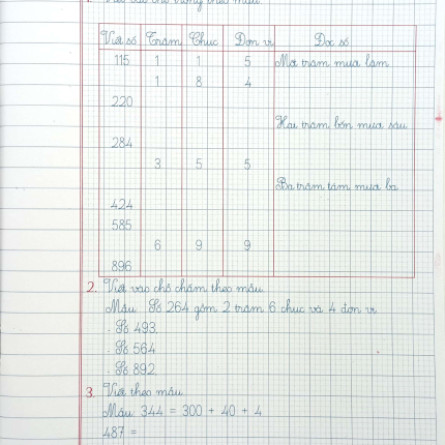 Viết số Trăm Chục Đơn vị Đọc số
115 1 1 5 Một trăm mười lăm
1 8 4
220
Hai trăm bốn mươi sáu
284
3 5 5
Ba trăm tám mươi ba
424
585
6 9 9
896
2. Viết vào chỗ chấm theo mẫu
Mẫu Số 264 gồm 2 trăm 6 chục và 4 đơn vị
. Số 493
. Số 564
. Số 892
3. Viết theo mẫu
Mẫu 344 = 300 + 40 + 4
487 =